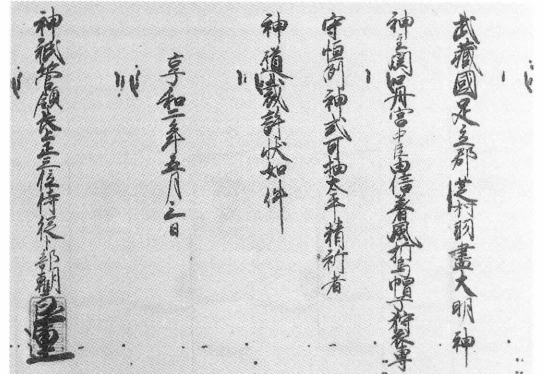 武藏國足立郡芝村羽盡大明神
神主関口丹宮中臣由信着風折烏帽子狩衣専
守恒例神式可抽太平精祈者
神道裁許状如件
享和二年五月三日
神祇管領長上正三位侍従卜部朝臣良連